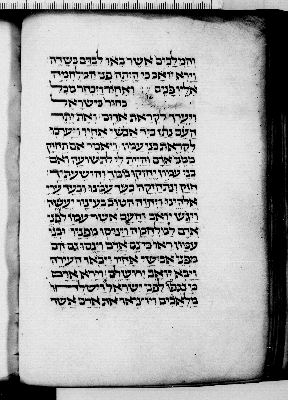 והמלכים אשר באו לבדם בשדה
וירא יואב כי היתה פני המלחמה
אליו פנים ואחור ויבחר מכל
בחור בישראל
ויערך לקראת ארם ואת יתר
העם נתן ביד אבשי אחיו ויערכו
לקראת בני עמון ויאמר אם תחזק
ממני ארם והיית לי לתשועה ואם
בני עמון יחזקו ממך והושעתיך
חזק ונתחזקה בעד עמנו ובעד ערי
אלהינו ויהוה הטוב בעיניו יעשה
ויגש יואב והעם אשר עמו לפני
ארם למלחמה וינוסו מפניו ובני
עמון ראו כי נס ארם וינוסו גם הם
מפני אבשי אחיו ויבאו העירה
ויבא יואב ירושלם וירא ארם
כי נגפו לפני ישראל וישלחו
מלאכים ויוציאו את ארם אשר